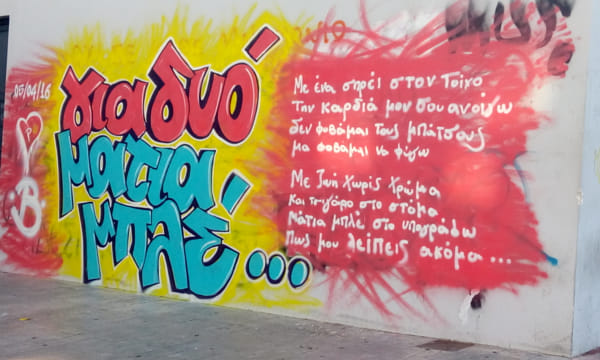 05/04/16
P
B.
για δυό
μάτια
μπλέ...
Με ένα σπρέι στον τοίχο
Την καρδιά μου σου ανοίγω
δεν φοβάμαι τους μπάτσους
μα φοβάμαι να φύγω
Με ζωή χωρίς χρώμα
και τσιγάρο στο στόμα
Μάτια μπλέ στο υπογράφω
Πως μου λείπεις ακόμα...